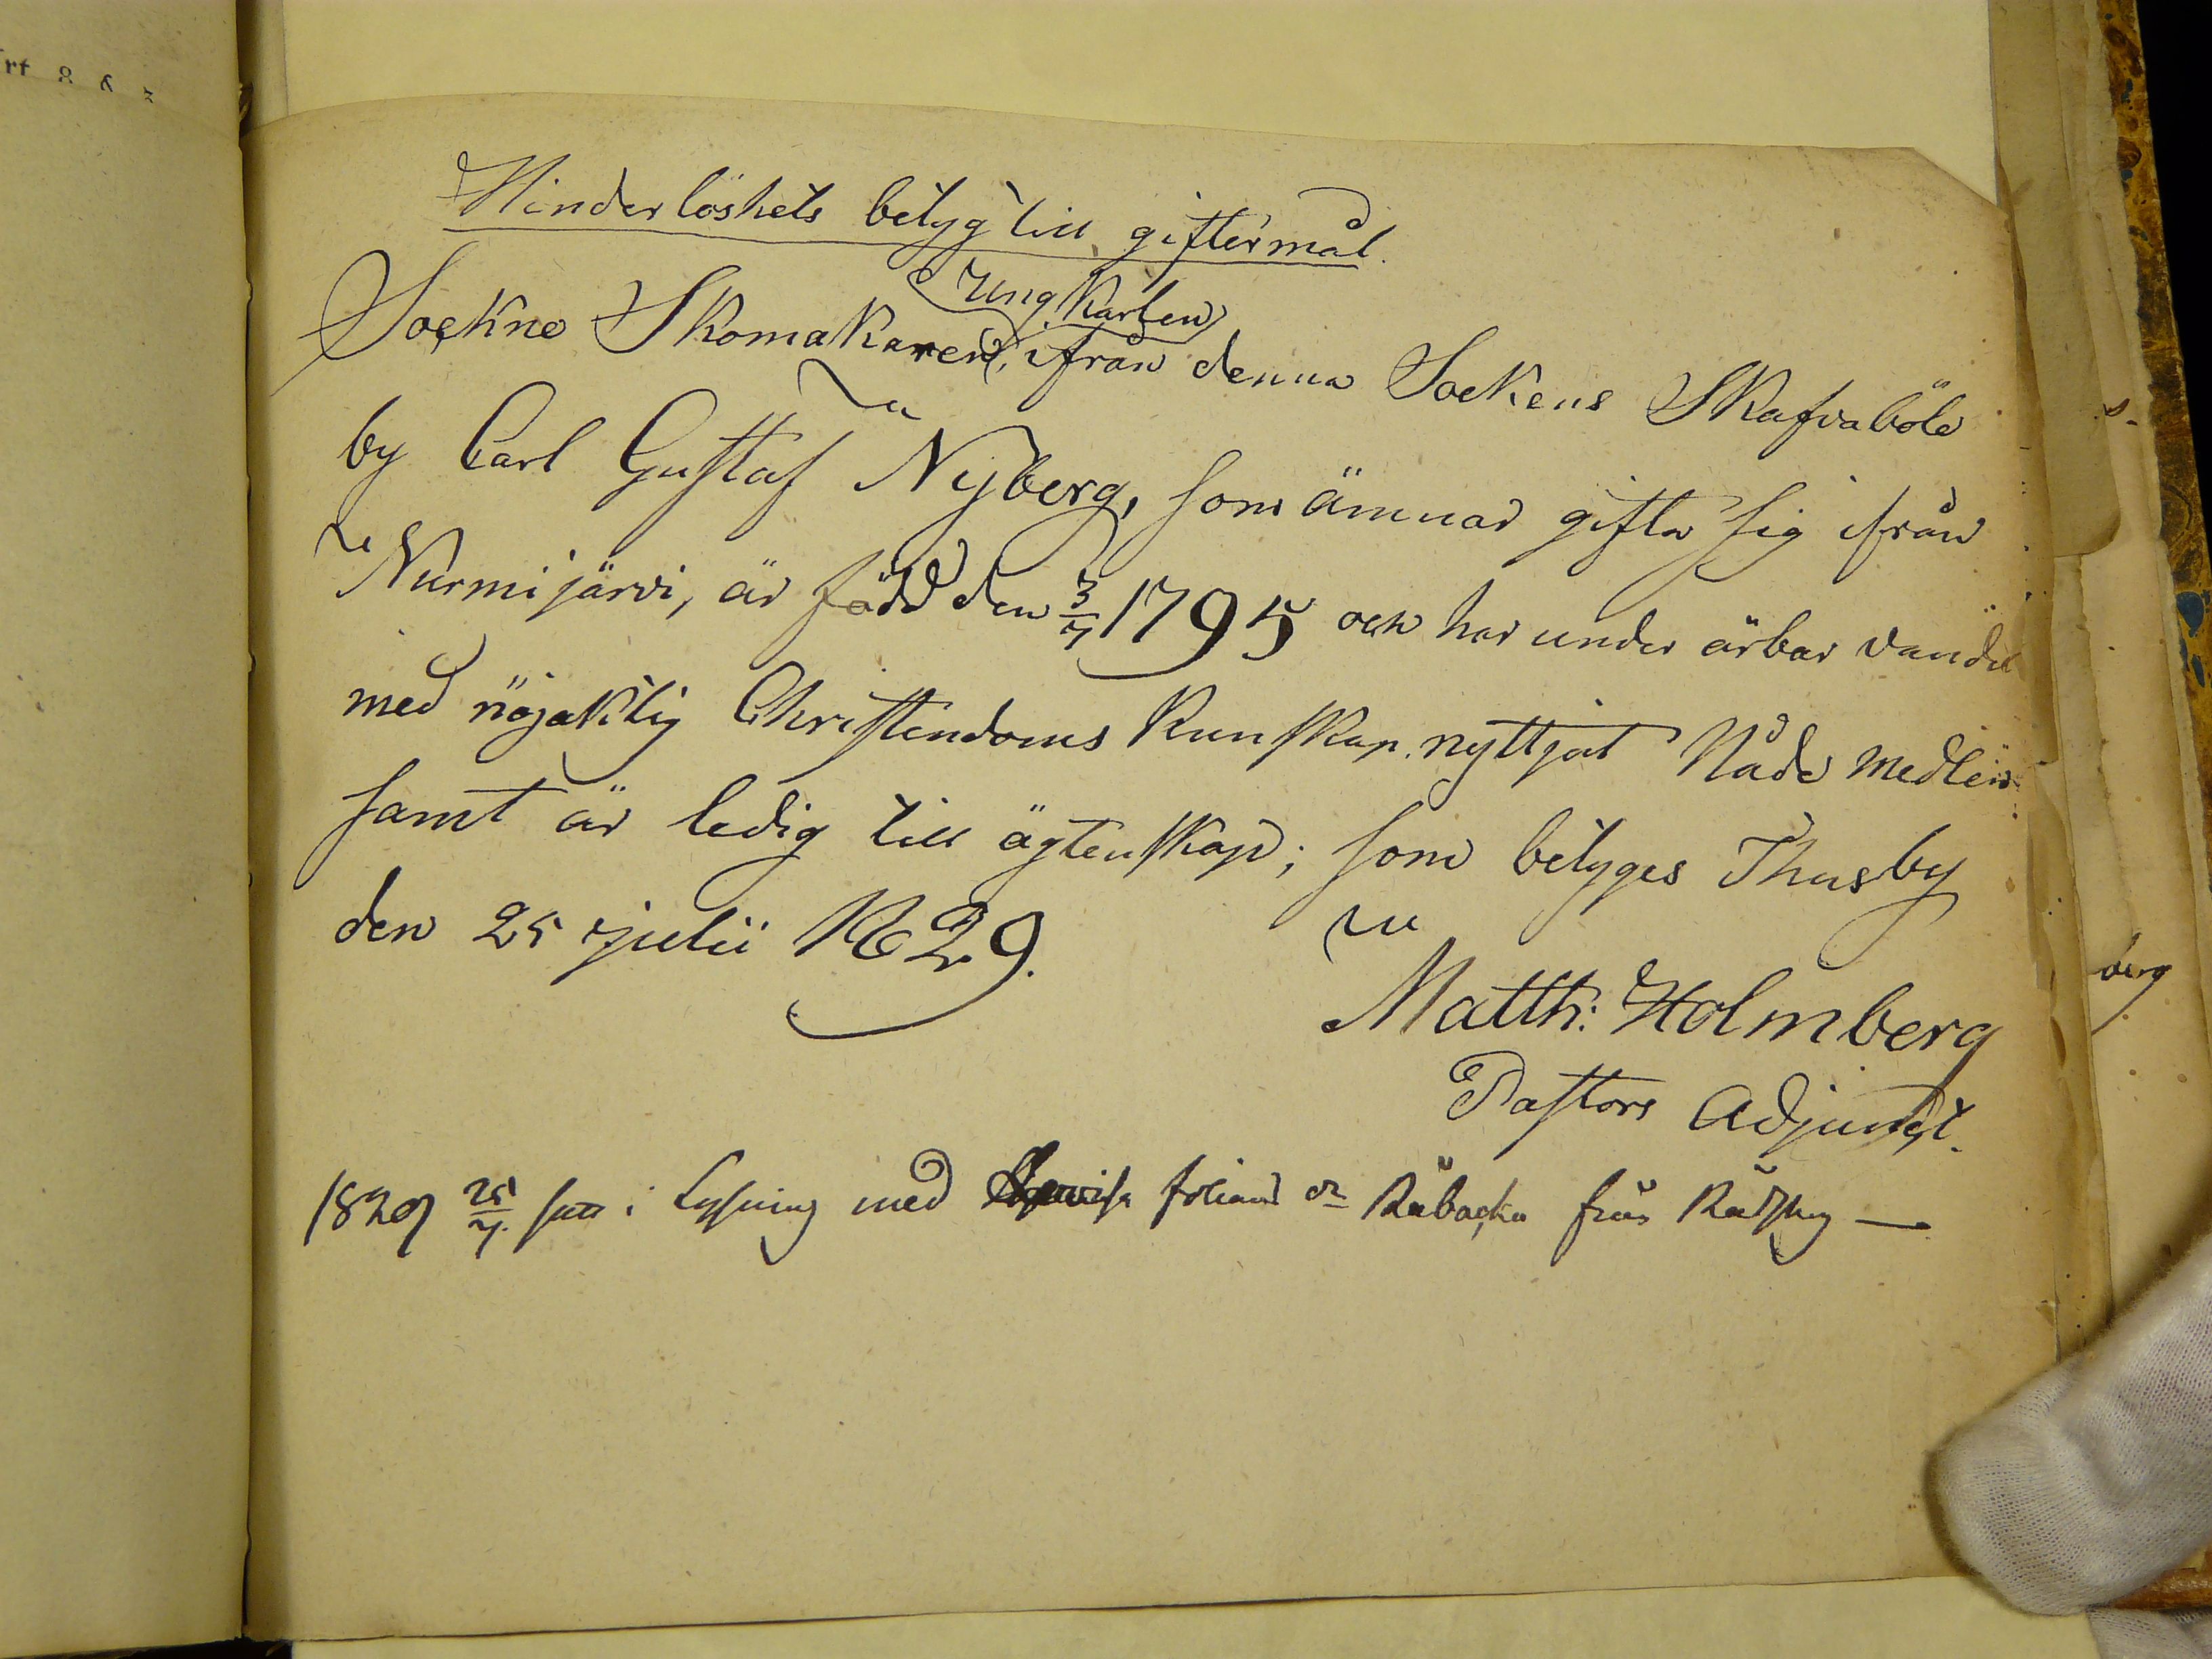 Hinderlöshets betyg till giftermål.
Ungkarlen
Sockne Skomakaren, ifrån denna Sockens Skafvaböle
by Carl Gustaf Nyberg, som ämnar gifta sig ifrån
Nurmijärvi, är född den 3/7 1795 och har under ärbar vandel
med nöjaktig Christendoms kunskap nyttjat Nåde medlen
samt är ledig till ägtenskap; som betyges Thusby
den 25 julii 1829.
Matth: Holmberg
Pastors Adjunct.
1829 25/7 i Lysning med från
berg